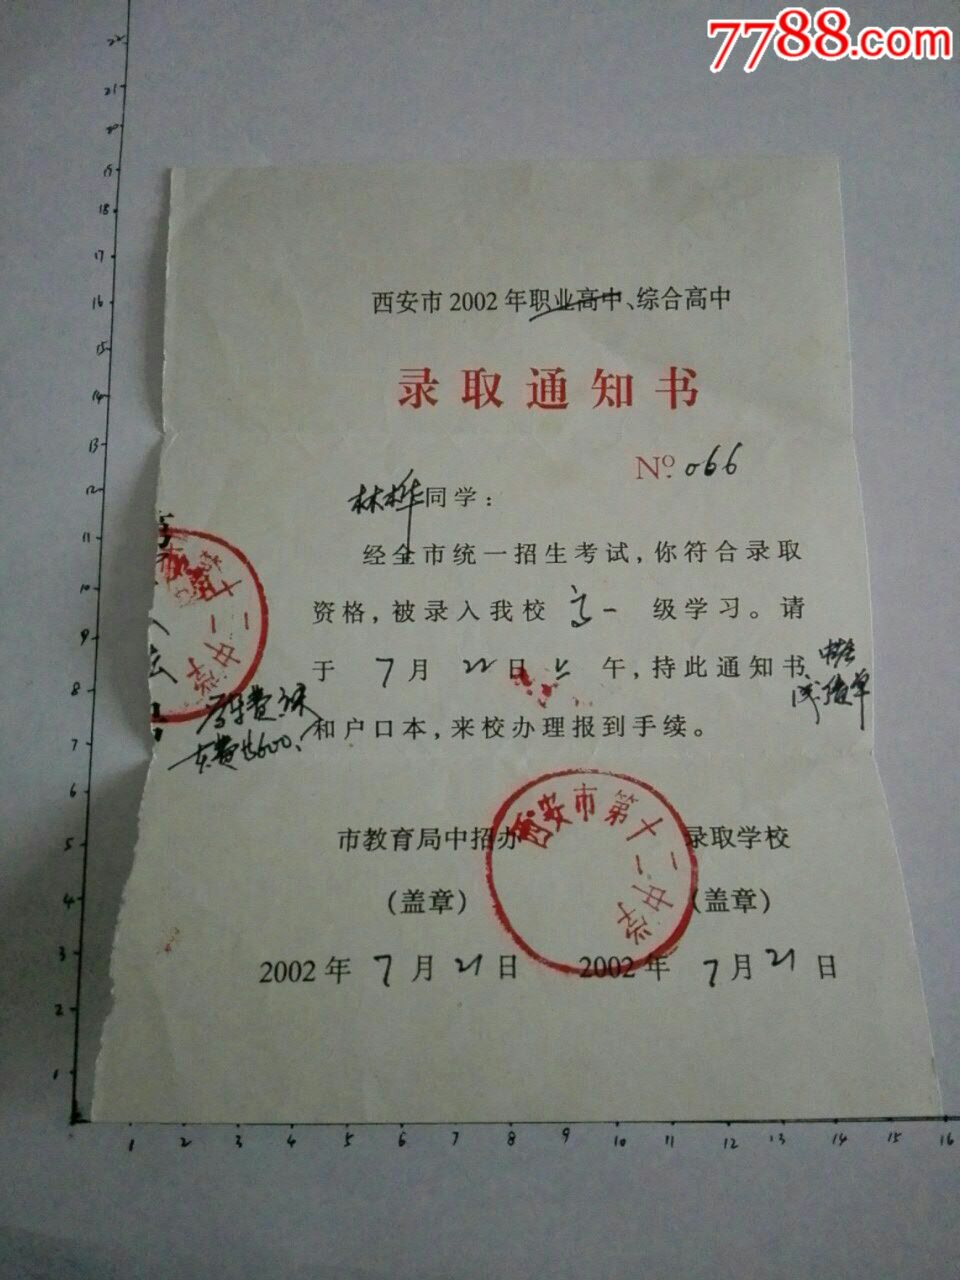 7788.com
西安市 2002 年职业高中、综合高中
录取通知书
No. 066
林桦同学:
经全市统一招生考试,你符合录取
资格,被录入我校 高一 级学习。请
于 7 月 22 日 上 午,持此通知书
中考
成绩单
和户口本,来校办理报到手续。
市教育局中招办 录取学校
(盖章) (盖章)
2002 年 7 月 21 日 2002 年 7 月 21 日
西安市第十一中学
市第十一中学
22
21
20
19
18
17
16
15
14
13
12
11
10
9
8
7
6
5
4
3
2
1
1 2 3 4 5 6 7 8 9 10 11 12 13 14 15 16